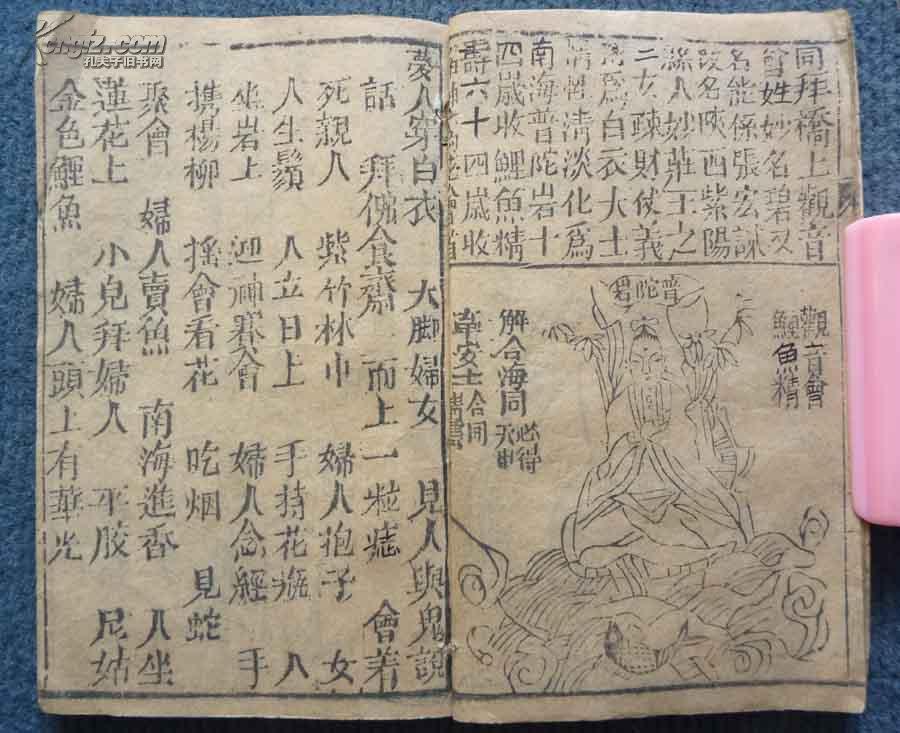 同拜橋上觀音
會姓妙名碧又
名能係張宏謀
改名陝西紫陽
縣人妙莊王之
二女疎財仗義
為白衣大士
清淡化為
南海普陀岩十
四歲收鯉魚精
壽六十四歲收
觀音會
鯉魚精
普陀岩
解合海同
必得
天申
華安士
合同
夢人穿白衣 大脚婦女 見人與鬼說
話 拜佛食齋 而上一粒痣 會着
死親人 紫竹林中 婦人抱子 女
人生鬍 人立日上 手持花瓶 人
坐岩上 迎神賽會 婦人念經 手
携楊柳 搖會看花 吃烟 見蛇
聚會 婦人賣魚 南海進香 人坐
蓮花上 小兒拜婦人 平胶 尼姑
金色鯉魚 婦人頭上有華光
Kongfz.com
孔夫子旧书网